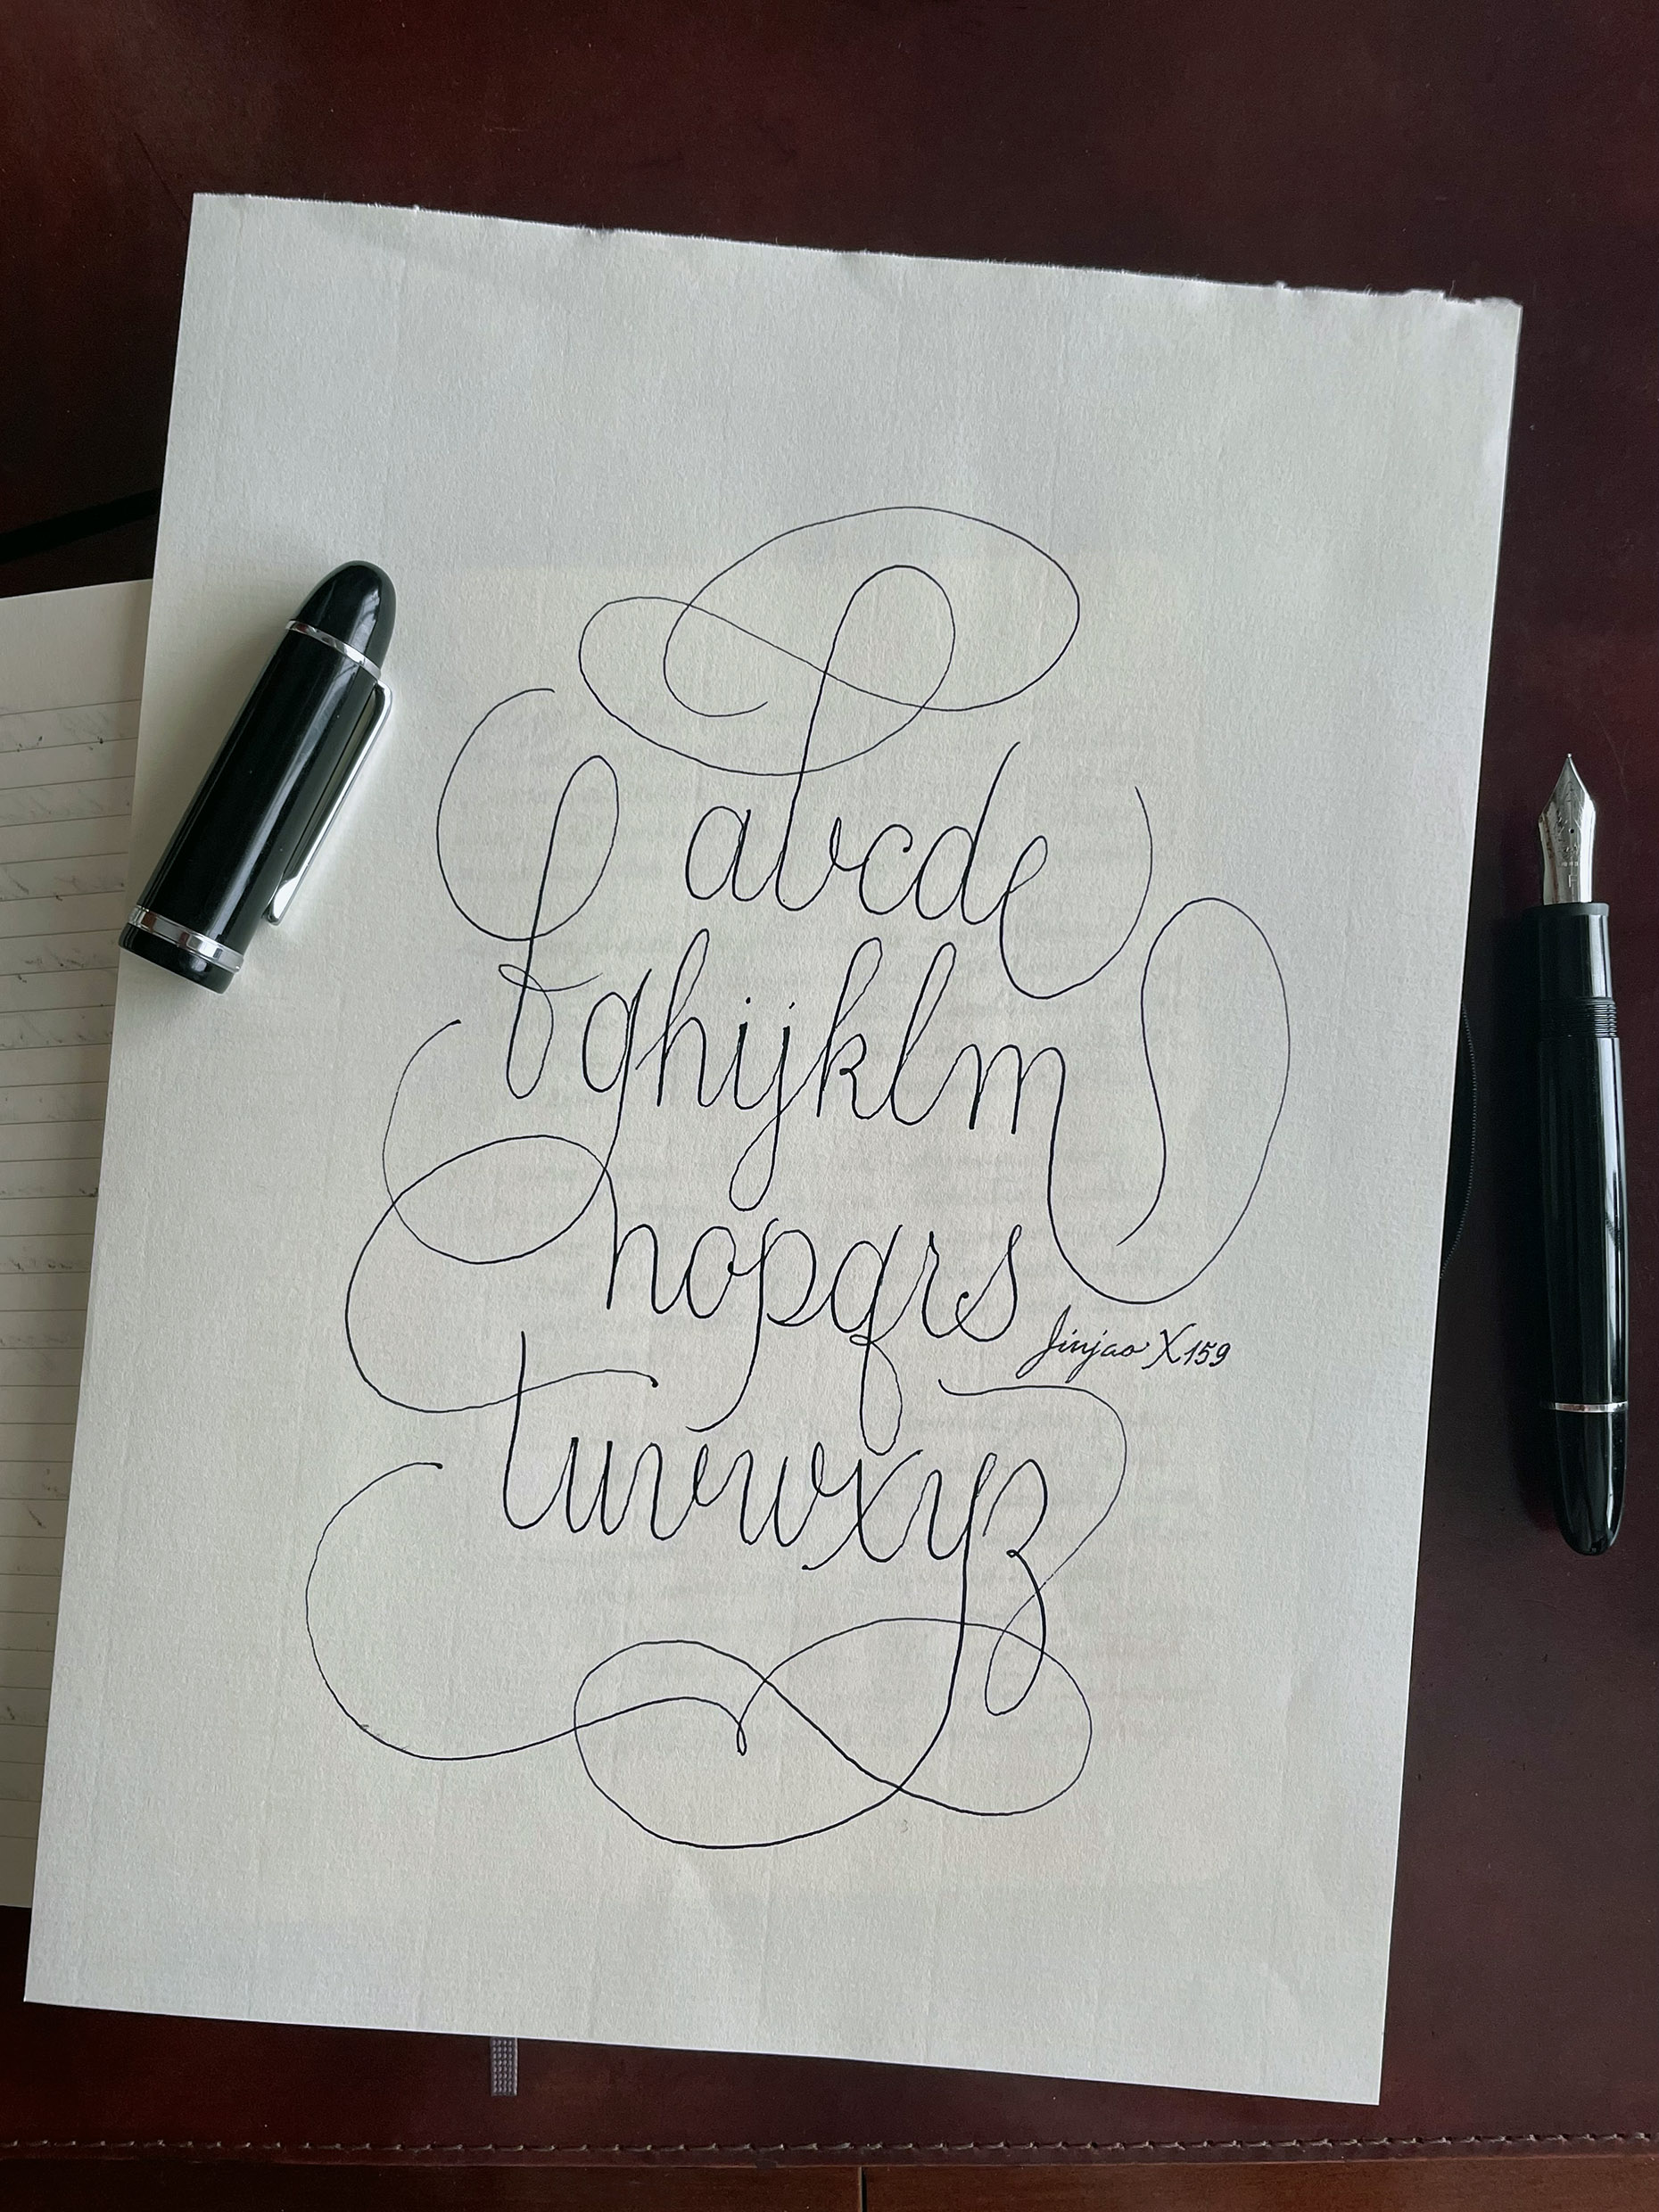 abcde
fghijklm
nopqrs
Jinjao X159
tuvwxyz